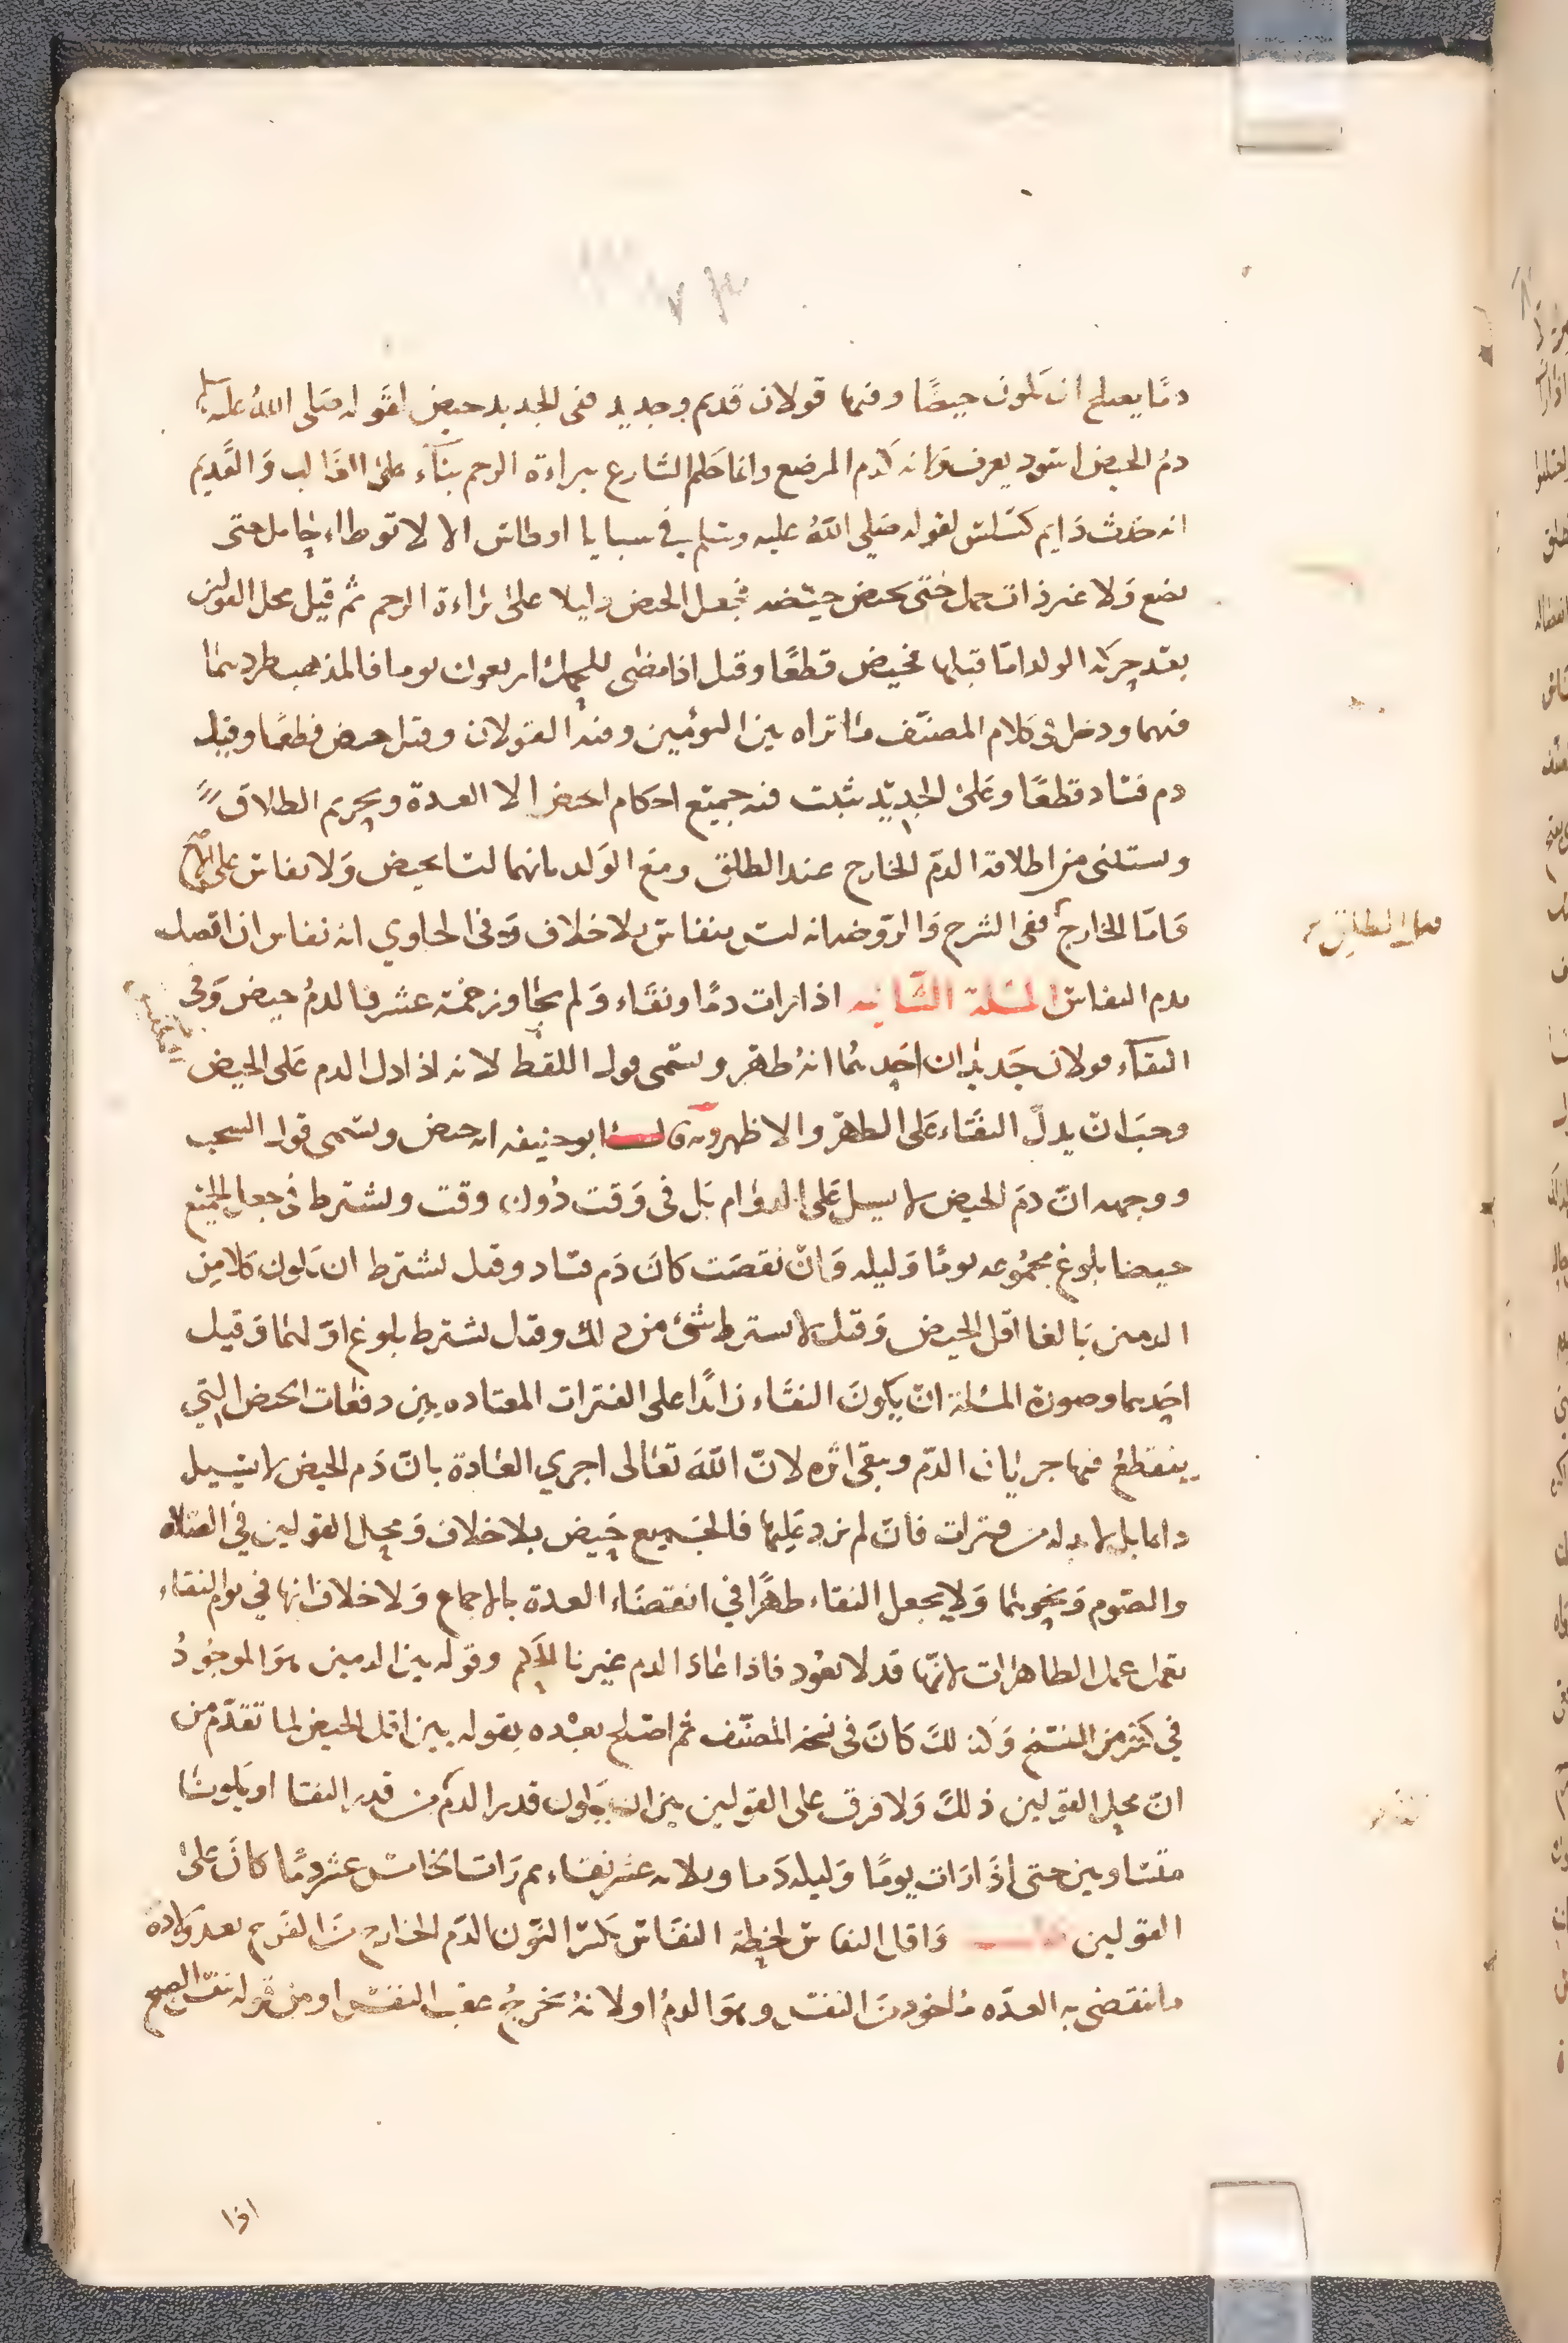 دمًا يصلح ان يكون حيضًا وفيها قولان قديم وجديد ففى الجديد حيض لقوله صلى الله عليه وسلم
دمُ الحيض اسود يعرف وَلانه كدم المرضع وانما حكم الشارع ببراءة الرحم بناءً على الغالب وَالقديم
انه حدث دَايم كسلس لقوله صلى اللهُ عليه وسلم في سبايا اوطاس الا لا توطاء حامل حتى
تضع وَلا غير ذات حمل حتى تحيض حيضه فجعل الحيض دليلا على براءة الرحم ثم قيل محل القولين
بعد حركه الولد امّا قبلها فحيض قطعًا وقيل اذا مضى للحمل اربعون يوما فالمذهب طردهما
فيهما ودخل فى كلام المصنّف ما تراه بين التوأمين وفيه القولان وقيل حيض قطعًا وقيل
دم فساد قطعًا وعلى الجديد يثبت فيه جميع احكام الحيض الا العدة وتحريم الطلاق
ويستثنى من اطلاقه الدم الخارج عند الطلق ومع الوَلد فانهما ليسا بحيض وَلا نفاس على الاصح
وَامّا الخارج ففى الشرح وَالروضه انه ليس بنفاس بلا خلاف وَفى الحاوي انه نفاس ان اتصل
قبل الطلق
بدم النفاس المسئلة الثانيه اذا رات دمًا ونقاء وَلم يجاوز خمسة عشر فالدمُ حيض وَفى
النقاء قولان جديدان احدهُما انهُ طهر ويسمى قول اللقط لانه اذا دل الدم عَلى الحيض
وجبَ ان يدلّ النقاء عَلى الطهر والاظهر وبه قال ابو حنيفه انه حيض ويسمى قول السحب
ووجهه انّ دمَ الحيض لا يسيل عَلى الدوام بَل فى وَقت دُون وقت ويشترط فى جعل الجميع
حيضا بلوغ مجموعه يومًا وَليله وَانْ نقصَت كانَ دَم فساد وقيل يشترط ان يكون كلا من
الدمين بَالغا اقل الحيض وَقيل لا يشترط شئ من ذلك وقيل يشترط بلوغ اوّلهما وَقيل
احدهما وصورة المسئلة انْ يكونَ النقاء زائدًا على الفترات المعتاده بين دفعات الحيض التي
ينقطعُ فيها جريان الدّم ويبقى اثره لانّ اللهَ تعَالى اجري العَادة بانّ دَم الحيض لا يسيل
دايما بل لا بد له من فترات فان لم يزد عليها فالجميع حَيض بلا خلاف وَمحل القولين في الصّلاه
والصَوم وَنحوهما وَلا يجعل النقاء طهرًا في انقضَاء العدة بالاجماع وَلا خلاف انها في يوم النقاء
تعمل عمل الطاهرات لانّها قد لا تعُود فاذا عَادَ الدم غيرنا الحكم وقوله بين الدمين هوَ الموجُودُ
في كثير من النسخ وَكذلكَ كانَ فى نسخه المصنّف ثم اصلح بعْده بقوله بين اقل الحيض لما تقدّم من
انّ محل القولين ذلكَ وَلا فرق على القولين بين ان يكون قدر الدم من قدر النقا او يكونا
متساويين حتى اذَا رَات يومًا وَليله دَما وثلاثه عشر نقاء ثم رَات الخامس عشر دمًا كانَ عَلى
القولين وَاقل النفاس لحظة النفَاس بكسر النّون الدّم الخارج منَ الفرج بعد وَلادة
ما تنقضى به العدّه مُاخوذ منَ النفس وهوَ الدمُ او لانهُ يخرجُ عقب النفس او من قوله تنفّس الصبح
اذا